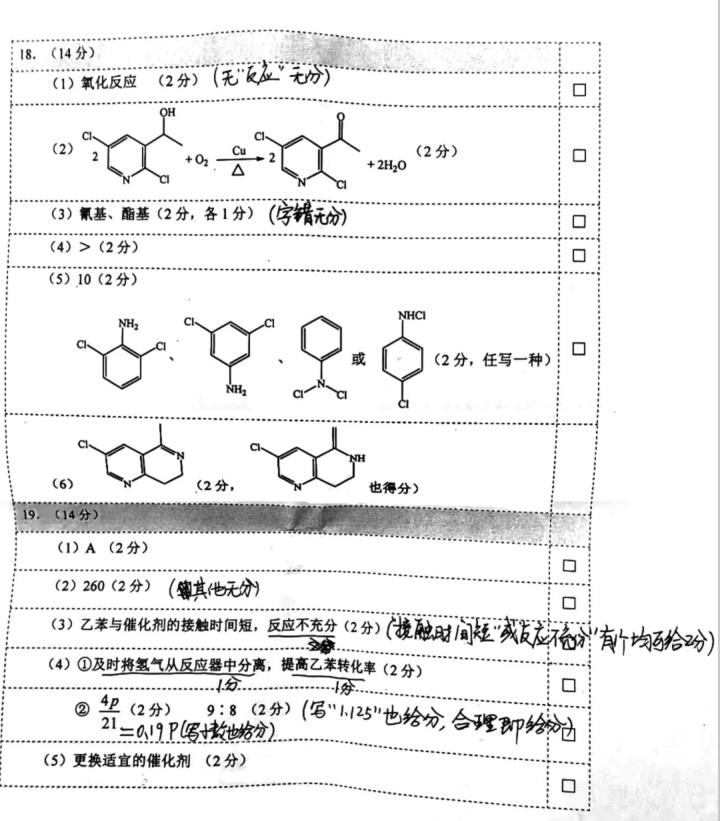 18. （14分）
（1）氧化反应 （2分）（无"反应"无分）
（2） 2 Cl OH N Cl + O₂ Cu △ 2 Cl O N Cl + 2H₂O （2分）
（3）氰基、酯基（2分，各1分）（字错无分）
（4）＞（2分）
（5）10（2分）
Cl NH₂ Cl 、 Cl Cl NH₂ 、 N Cl Cl 或 NHCl Cl （2分，任写一种）
（6） Cl N N （2分， Cl N NH 也得分）
19. （14分）
（1）A （2分）
（2）260（2分）（其他无分）
（3）乙苯与催化剂的接触时间短，反应不充分（2分）（"接触时间短"或"反应不充分"有1个均可给2分）
（4）①及时将氢气从反应器中分离，提高乙苯转化率（2分）
1分 1分
② 4p/21 （2分） 9：8 （2分）（写"1.125"也给分，合理即给分）
=0.19P（写小数也给分）
（5）更换适宜的催化剂 （2分）